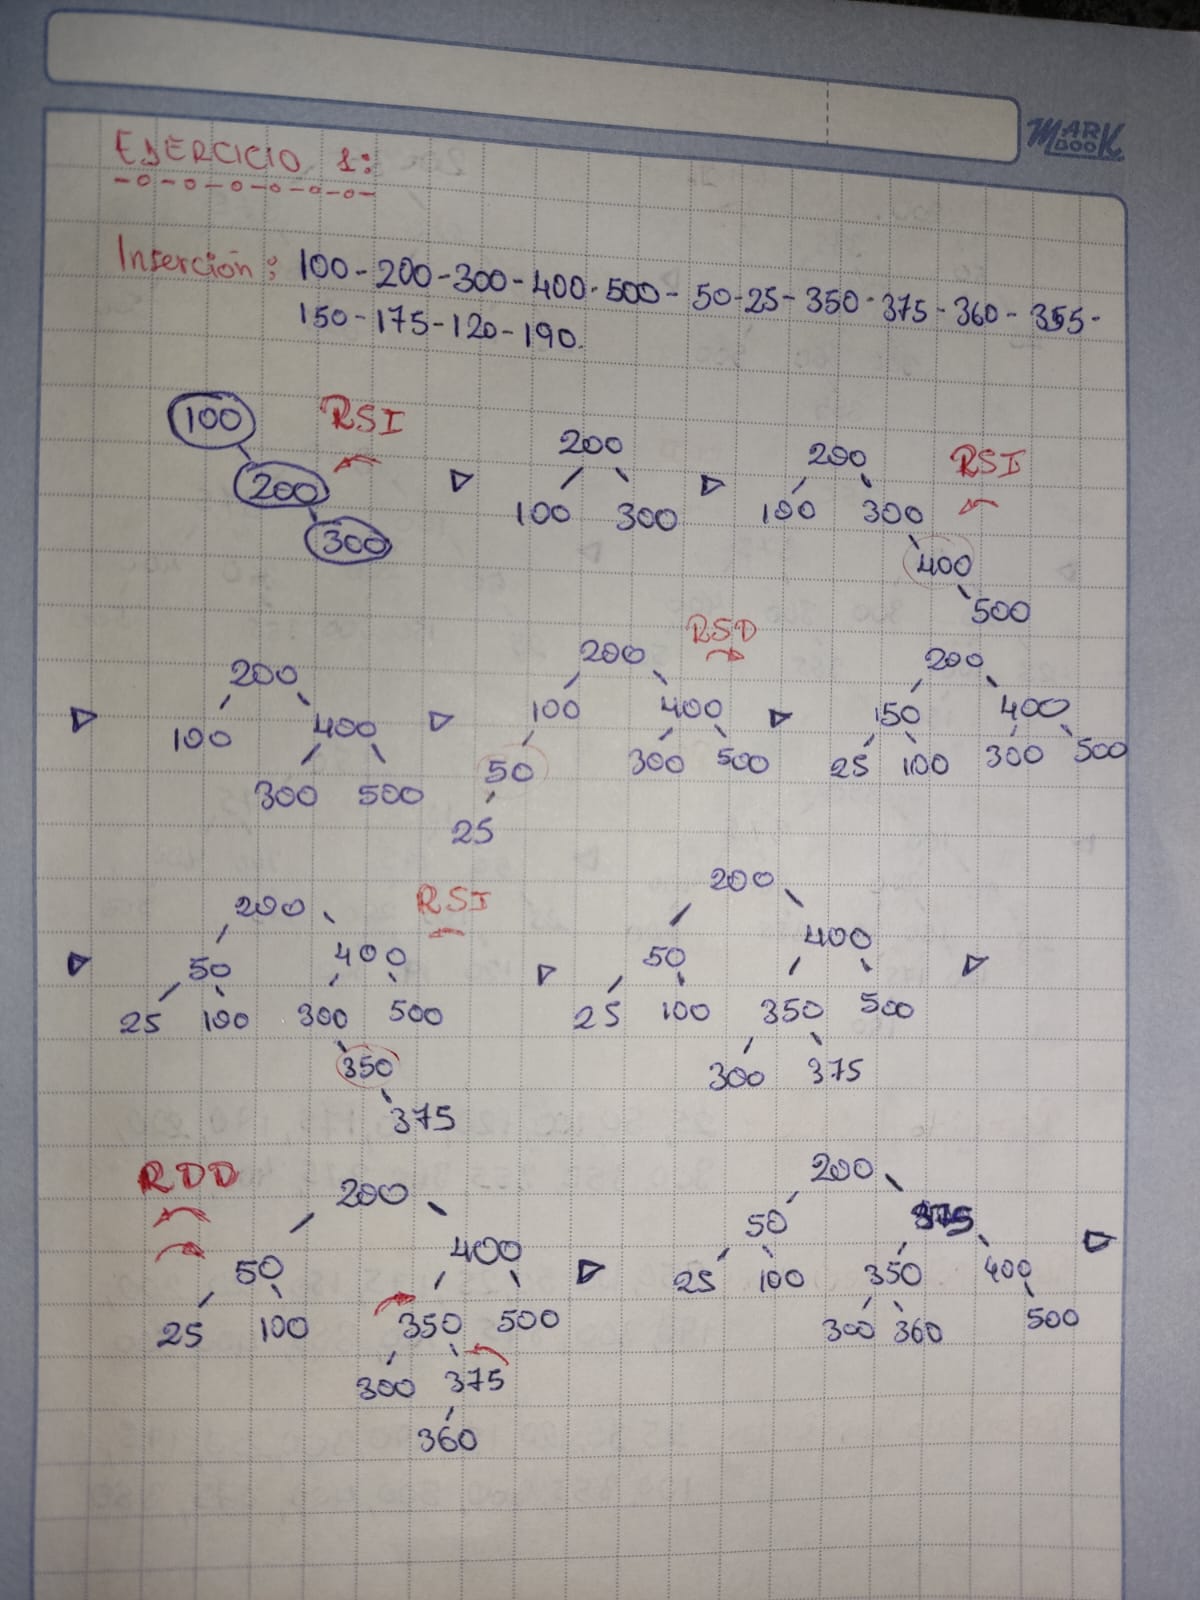 MARK
BOOK
EJERCICIO 1:
Inserción: 100-200-300-400-500-50-25-350-375-360-355-
150-175-120-190.
100 RSI
200
300
200
100 300
200 RSI
100 300
400
500
200
100 400
300 500
200 RSD
100 400
50 300 500
25
200
150 400
25 100 300 500
200 RSI
50 400
25 100 300 500
350
375
200
50 400
25 100 350 500
300 375
RDD 200
50 400
25 100 350 500
300 375
360
200
50 375
25 100 350 400
300 360 500